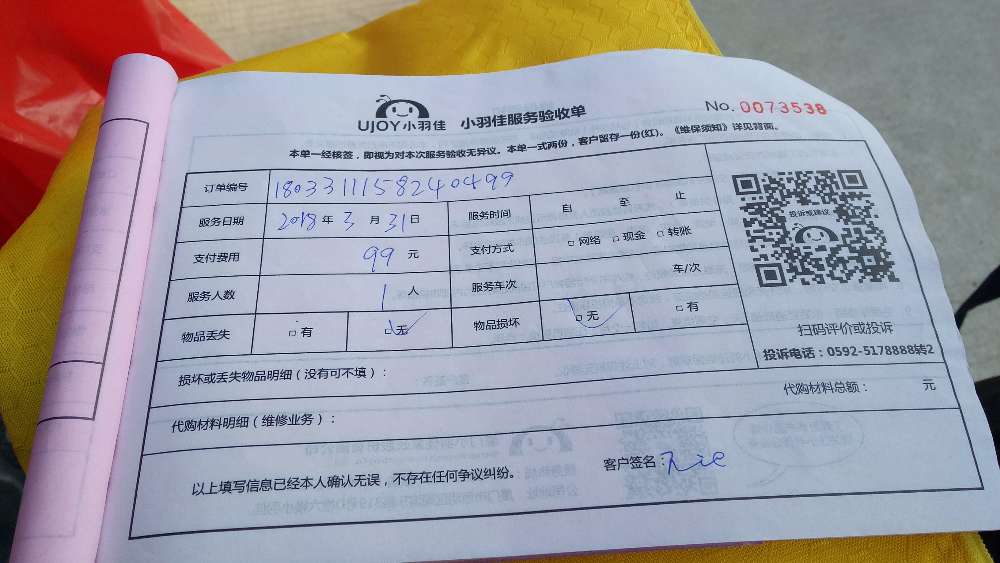 UJOY小羽佳 小羽佳服务验收单 No. 0073538
本单一经核签，即视为对本次服务验收无异议。本单一式两份，客户留存一份(红)。《维保须知》详见背面。
订单编号 1803311158240499
服务日期 2018年3月31日 服务时间 自 至 止
支付费用 99元 支付方式 □网络 □现金 □转账
服务人数 1人 服务车次 车/次
物品丢失 □有 □无 物品损坏 □无 □有
投诉或建议
扫码评价或投诉
投诉电话：0592-5178888转2
损坏或丢失物品明细（没有可不填）：
代购材料明细（维修业务）： 代购材料总额： 元
以上填写信息已经本人确认无误，不存在任何争议纠纷。 客户签名：